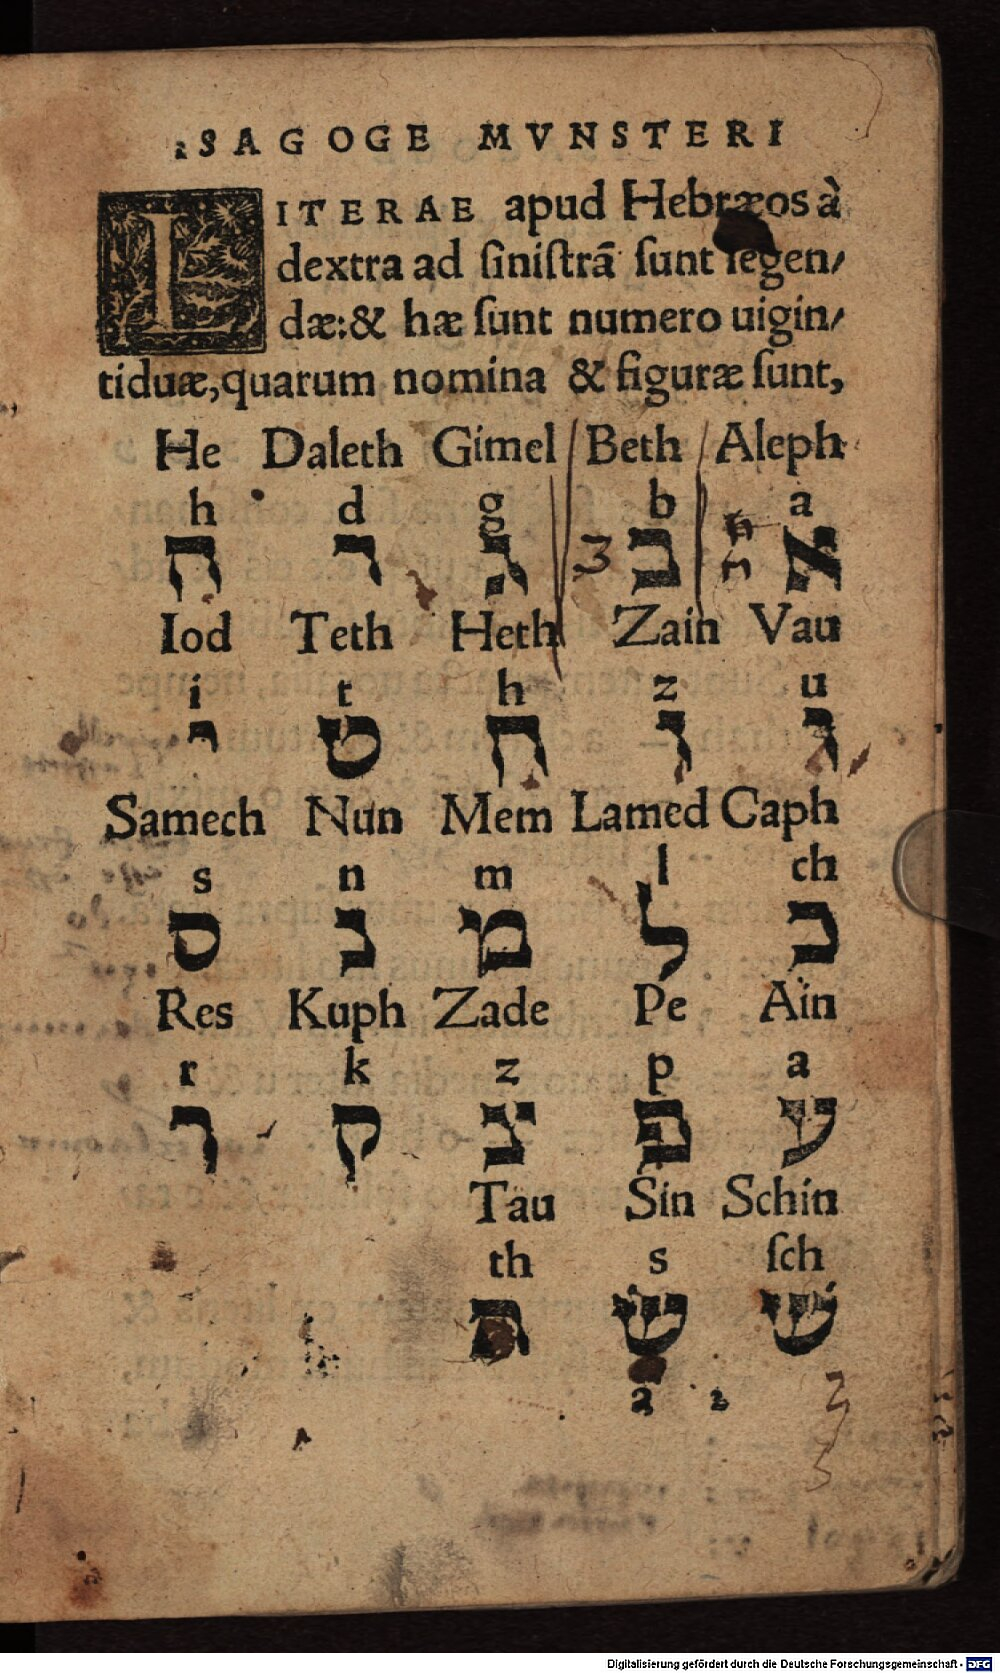 ISAGOGE MVNSTERI
LITERAE apud Hebræos à
dextra ad siniſtrā ſunt legen/
dæ:& hæ ſunt numero uigin/
tiduæ,quarum nomina & figuræ ſunt,
He Daleth Gimel Beth Aleph
h d g b a
ה ד ג 3 ב א
Iod Teth Heth Zain Vau
i t h z u
י ט ח ז ו
Samech Nun Mem Lamed Caph
s n m l ch
ס נ מ ל כ
Res Kuph Zade Pe Ain
r k z p a
ר ק צ פ ע
Tau Sin Schin
th s ſch
ת שׂ שׁ
a 2
Digitalisierung gefördert durch die Deutsche Forschungsgemeinschaft - DFG